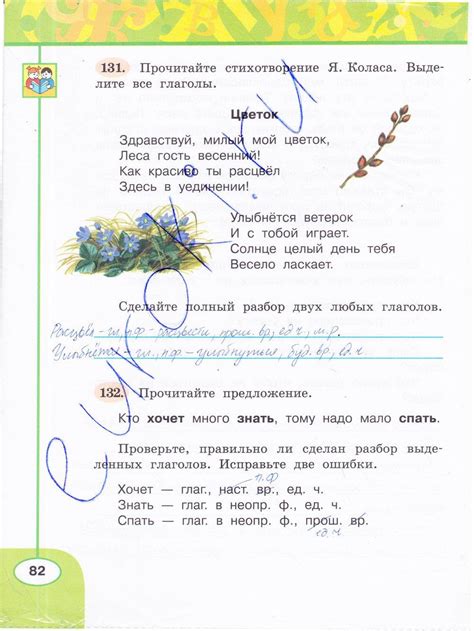 131. Прочитайте стихотворение Я. Коласа. Выде-
лите все глаголы.
Цветок
Здравствуй, милый мой цветок,
Леса гость весенний!
Как красиво ты расцвёл
Здесь в уединении!
Улыбнётся ветерок
И с тобой играет.
Солнце целый день тебя
Весело ласкает.
Сделайте полный разбор двух любых глаголов.
Расцвёл – гл., н.ф – расцвести, прош. вр., ед. ч., м. р.
Улыбнётся – гл., н.ф – улыбнуться, буд. вр., ед. ч.
132. Прочитайте предложение.
Кто хочет много знать, тому надо мало спать.
Проверьте, правильно ли сделан разбор выде-
ленных глаголов. Исправьте две ошибки.
Хочет — глаг., наст. вр., ед. ч.
Знать — глаг. в неопр. ф., ед. ч.
Спать — глаг. в неопр. ф., прош. вр.
ед. ч
82